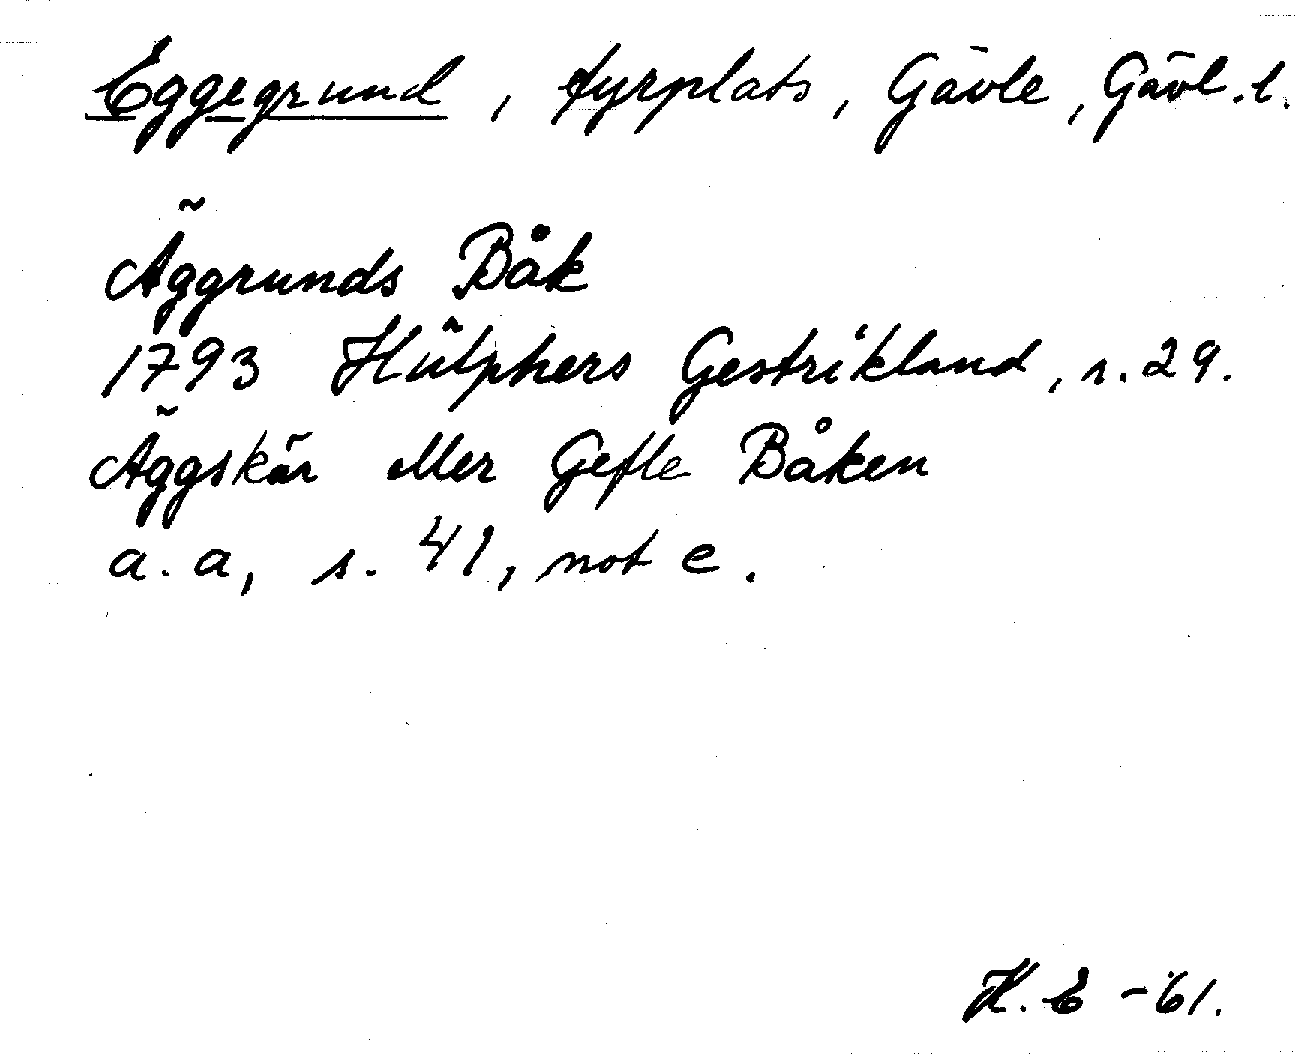 Eggegrund, fyrplats, Gävle, Gävl.l.
Äggrunds Båk
1793 Hülphers Gestrikland, s. 29.
Äggskär eller Gefle Båken
a.a, s. 41, not e.
H.E -61.